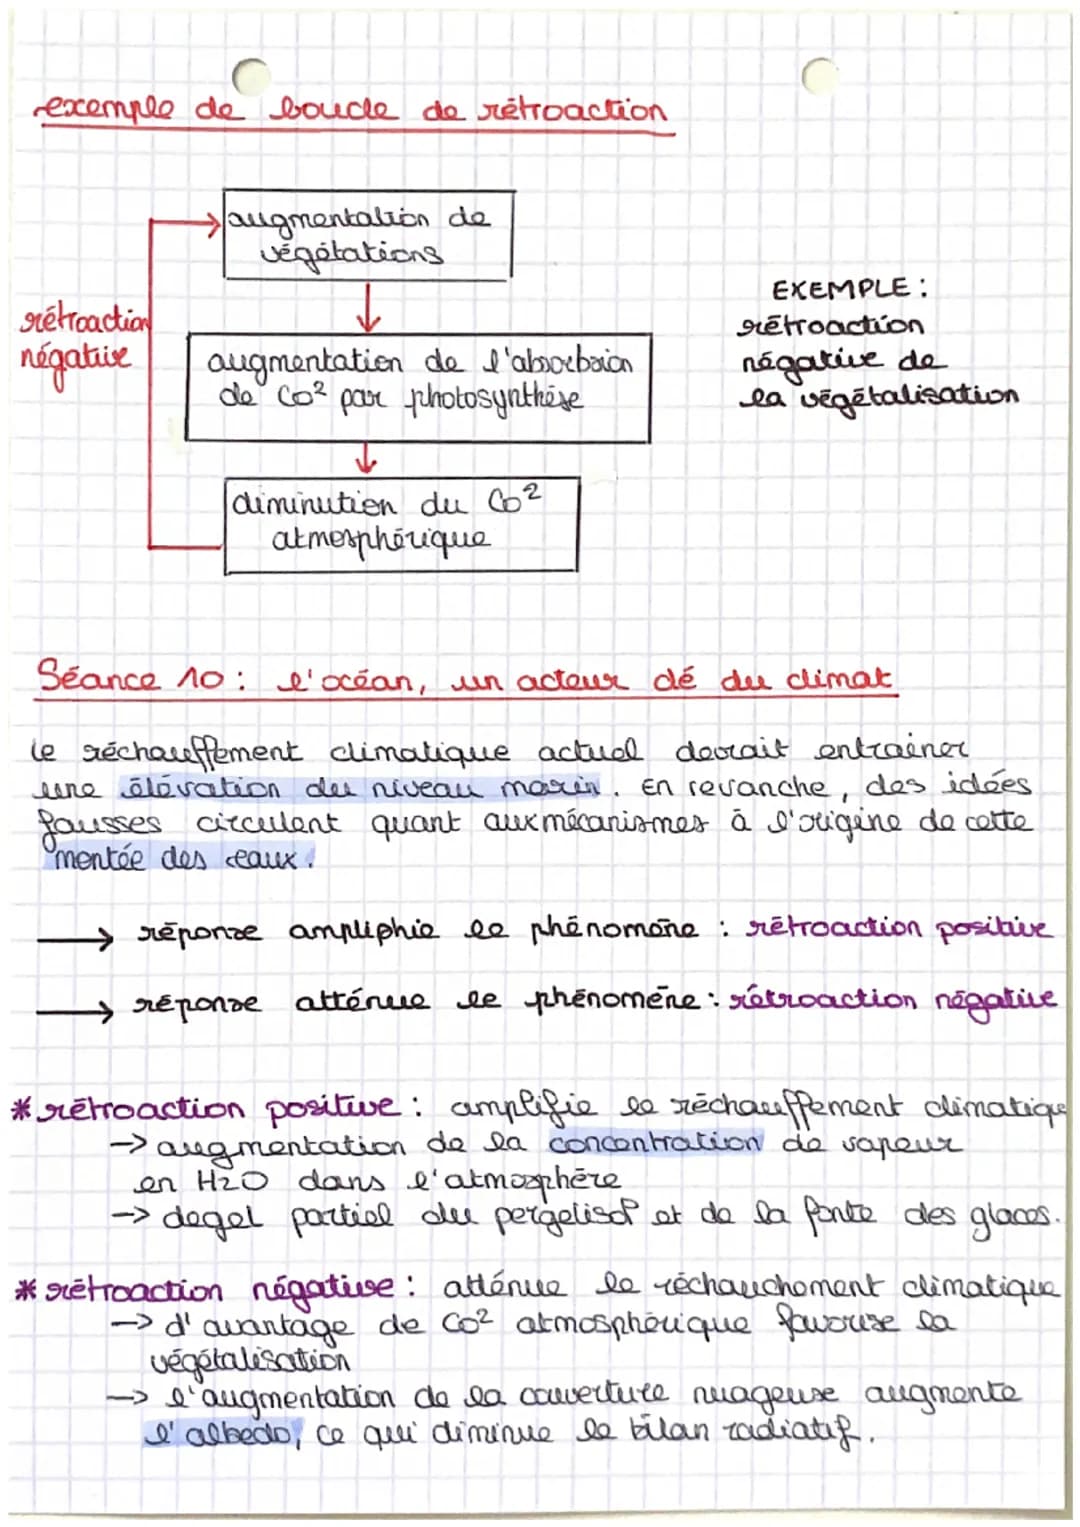 exemple de boucle de rétroaction
augmentation de
végétations
rétroaction
négative
EXEMPLE :
rétroaction
négative de
la végétalisation
augmentation de l'absorbaion
de Co² par photosynthèse
diminution du Co²
atmosphérique
Séance 10 : l'océan, un acteur clé du climat
le réchauffement climatique actuel devrait entrainer
une élévation du niveau marin. En revanche, des idées
fausses circulent quant aux mécanismes à l'origine de cette
montée des eaux.
→ réponse ampliphie le phénomène : rétroaction positive
→ réponse atténue le phénomène : rétroaction négative
* rétroaction positive : amplifie le réchauffement climatique
→ augmentation de la concentration de vapeur
en H2O dans l'atmosphère
→ degel partiel du pergelisol et de la fonte des glaces.
* rétroaction négative : atténue le réchauchement climatique
→ d'avantage de Co² atmosphérique favorise la
végétalisation
→ l'augmentation de la couverture nuageuse augmente
l'albédo, ce qui diminue le bilan radiatif.